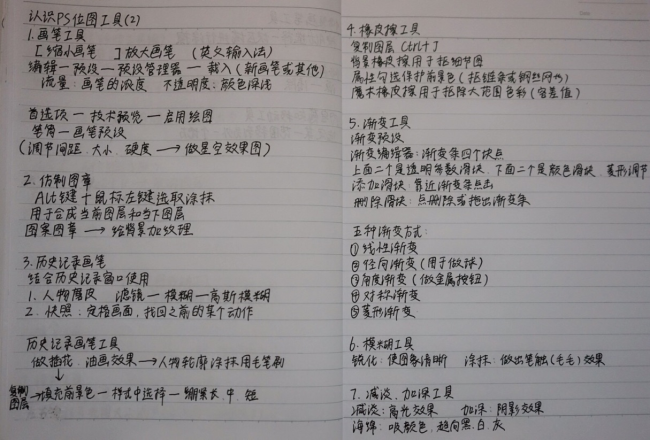 认识PS位图工具(2)
1.画笔工具
[缩小画笔 ]放大画笔 (英文输入法)
编辑一预设一预设管理器一载入(新画笔或其他)
流量:画笔的浓度 不透明度:颜色深浅
首选项一技术预览一启用绘图
笔筒一画笔预设
(调节间距.大小.硬度→做星空效果图)
2.仿制图章
Alt键+鼠标左键选取涂抹
用于合成当前图层和当下图层
图案图章→给背景加纹理
3.历史记录画笔
结合历史记录窗口使用
1.人物磨皮 滤镜一模糊一高斯模糊
2.快照:定格画面,找回之前的某个动作
历史记录画笔工具
做插花、油画效果→人物轮廓涂抹用毛笔刷
↓
复制图层→填充前景色一样式中选择一绷紧长.中 短
4.橡皮擦工具
复制图层 Ctrl+J
背景橡皮擦用于抠细节图
属性勾选保护前景色(抠链条或钢丝网等)
魔术橡皮擦用于抠除大范围色彩(容差值)
5.渐变工具
渐变预设
渐变编辑器:渐变条四个快点
上面二个是透明带数滑块、下面二个是颜色滑块、菱形调节
添加滑块:靠近渐变条点击
删除滑块:点删除或拖出渐变条
五种渐变方式:
①线性渐变
②径向渐变(用于做球)
③角度渐变(做金属按钮)
④对称渐变
⑤菱形渐变
6.模糊工具
锐化:使图象清晰 涂抹:做出笔触(毛毛)效果
7.减淡、加深工具
减淡:高光效果 加深:阴影效果
海绵:吸颜色,趋向黑.白.灰